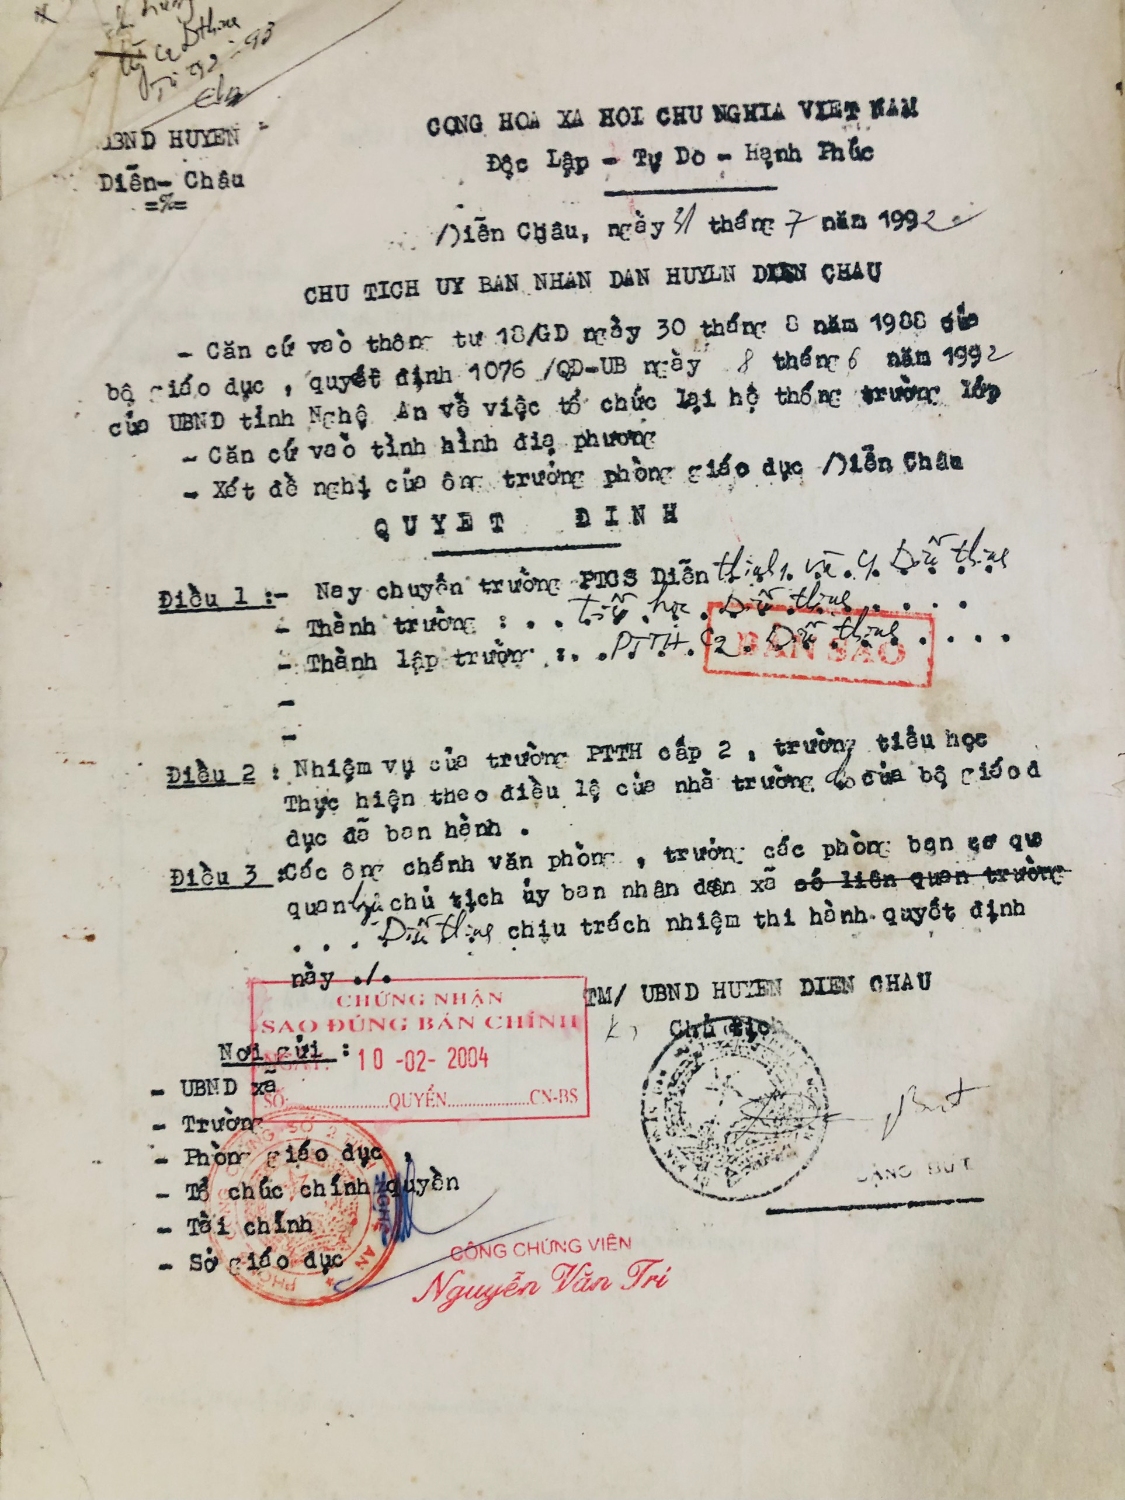 Từ 92 - 93
UBND HUYEN
Diễn- Châu
=%=
CONG HOA XA HOI CHU NGHIA VIET NAM
Độc Lập - Tự Do - Hạnh Phúc
Diễn Châu, ngày 31 tháng 7 năm 1992
CHU TICH UY BAN NHAN DAN HUYLN DIEN CHAU
- Căn cứ vaò thông tư 18/GD ngày 30 tháng 8 năm 1988 của
bộ giáo dục , quyết định 1076 /QĐ-UB ngày 8 tháng 6 năm 1992
của UBND tỉnh Nghệ An về việc tổ chức lại hệ thống trường lớp
- Căn cứ vaò tình hình điạ phương
- Xét đề nghị của ông trưởng phòng giáo dục Diễn Châu
QUYET ĐINH
Điều 1 :- Nay chuyển trường PTCS Diễn thịnh 1 và 2 Diễn thịnh
- Thành trường : . . Tiểu học Diễn thịnh . . . .
- Thành lập trường : . . PTTH C2 Diễn thịnh . . . .
BẢN SAO
-
-
Điều 2 : Nhiệm vụ của trường PTTH cấp 2 , trường tiểu học
Thực hiện theo điều lệ của nhà trường do của bộ giáo d
dục đã ban hành .
Điều 3 :Các ông chánh văn phòng , trưởng các phòng ban cơ qua
quan chủ tịch ủy ban nhân dân xã có liên quan trường
. . . Diễn thịnh chịu trách nhiệm thi hành quyết định
này ./.
CHỨNG NHẬN
SAO ĐÚNG BẢN CHÍNH
NGÀY: 10 -02- 2004
SỐ:....................QUYỂN................CN-BS
TM/ UBND HUYEN DIEN CHAU
K, Chủ tịch
Nơi gửi :
- UBND xã
- Trường
- Phòng giáo dục ,
- Tổ chức chính quyền
- Tài chính
- Sở giáo dục
CÔNG CHỨNG VIÊN
Nguyễn Văn Trí